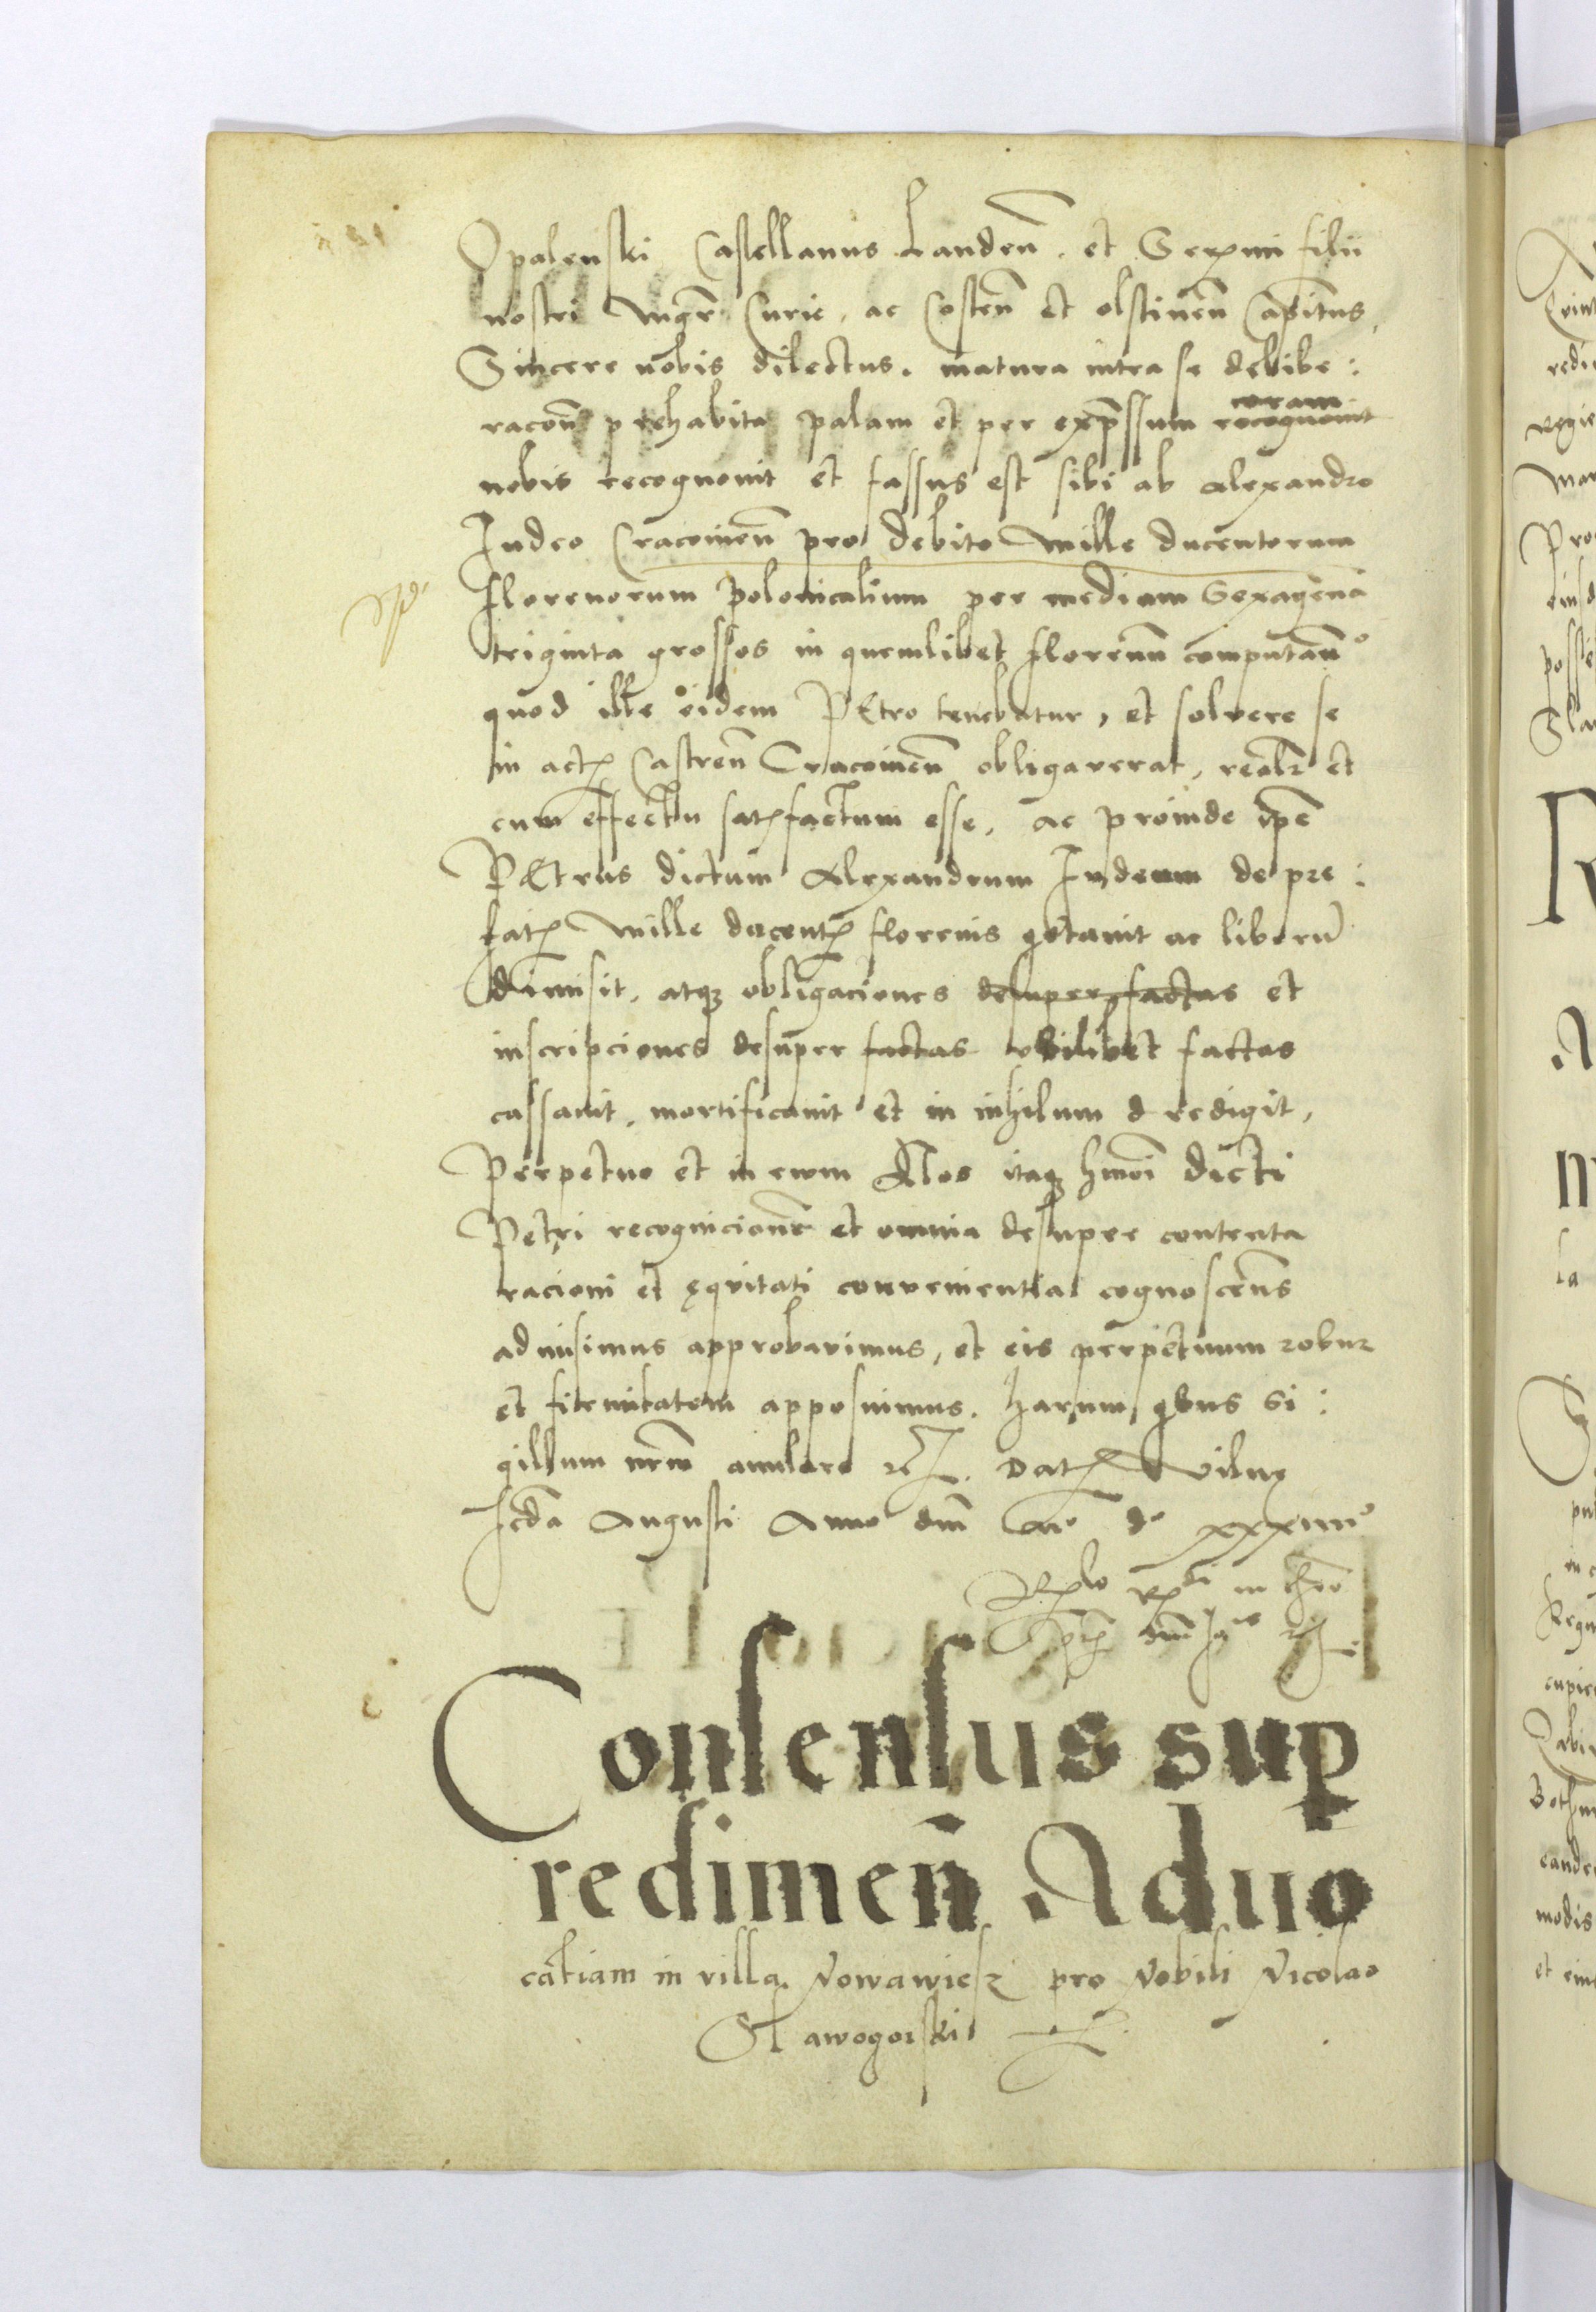 Opalenski Castellanus Landen̄. et Serm̄i filii
nostri Mgr̄ Curie, ac Costen̄ et olstinen̄ Capitn̄s,
Sincere nobis dilectus. matura intra se delibe:
racōn̄ prehabita palam et per exp̄ssum recognouit coram
nobis recognouit et fassus est sibi ab Alexandro
Iudeo Cracouien̄ pro debito Mille ducentorum
florenorum polonicalium per mediam Sexagenā
triginta grossos in quemlibet florenū computan̄º
quod ille eidem PEtro tenebatur, et solvere se
in actꝭ Castren̄ Cracouien̄ obligaverat, realr̄ et
cum effectu satꝭfactum esse, ac proinde ip̄e
PEtrus dictum Alexandrum Iudeum de pre:
fatꝭ Mille ducentꝭ florenis qētauit ac liberū
dimisit, atqꝫ obligaciones desuper factas et
inscripciones desuper factas ubilibet factas
cassauit, mortificauit et in inhilum d redigit,
Perpetuo et in evum Nos itaqꝫ hm̄oi dicti
Petri recognicionē et omnia desuper contenta
racioni et ęqvitati convenientia cognoscen̄s
admisimus approbavimus, et eis perpetuum robur
et firmitatem apposuimus. harum qbus Si:
gillum nr̄m anulare rc̄. Datꝭ Vilnę
Augusti Anno dn̄i Mº dº xxxiiiiº
Consensus sup
redimen̄ Aduo
catiam in villa Nowawiesz pro Nobili Nicolao
Stawogorski